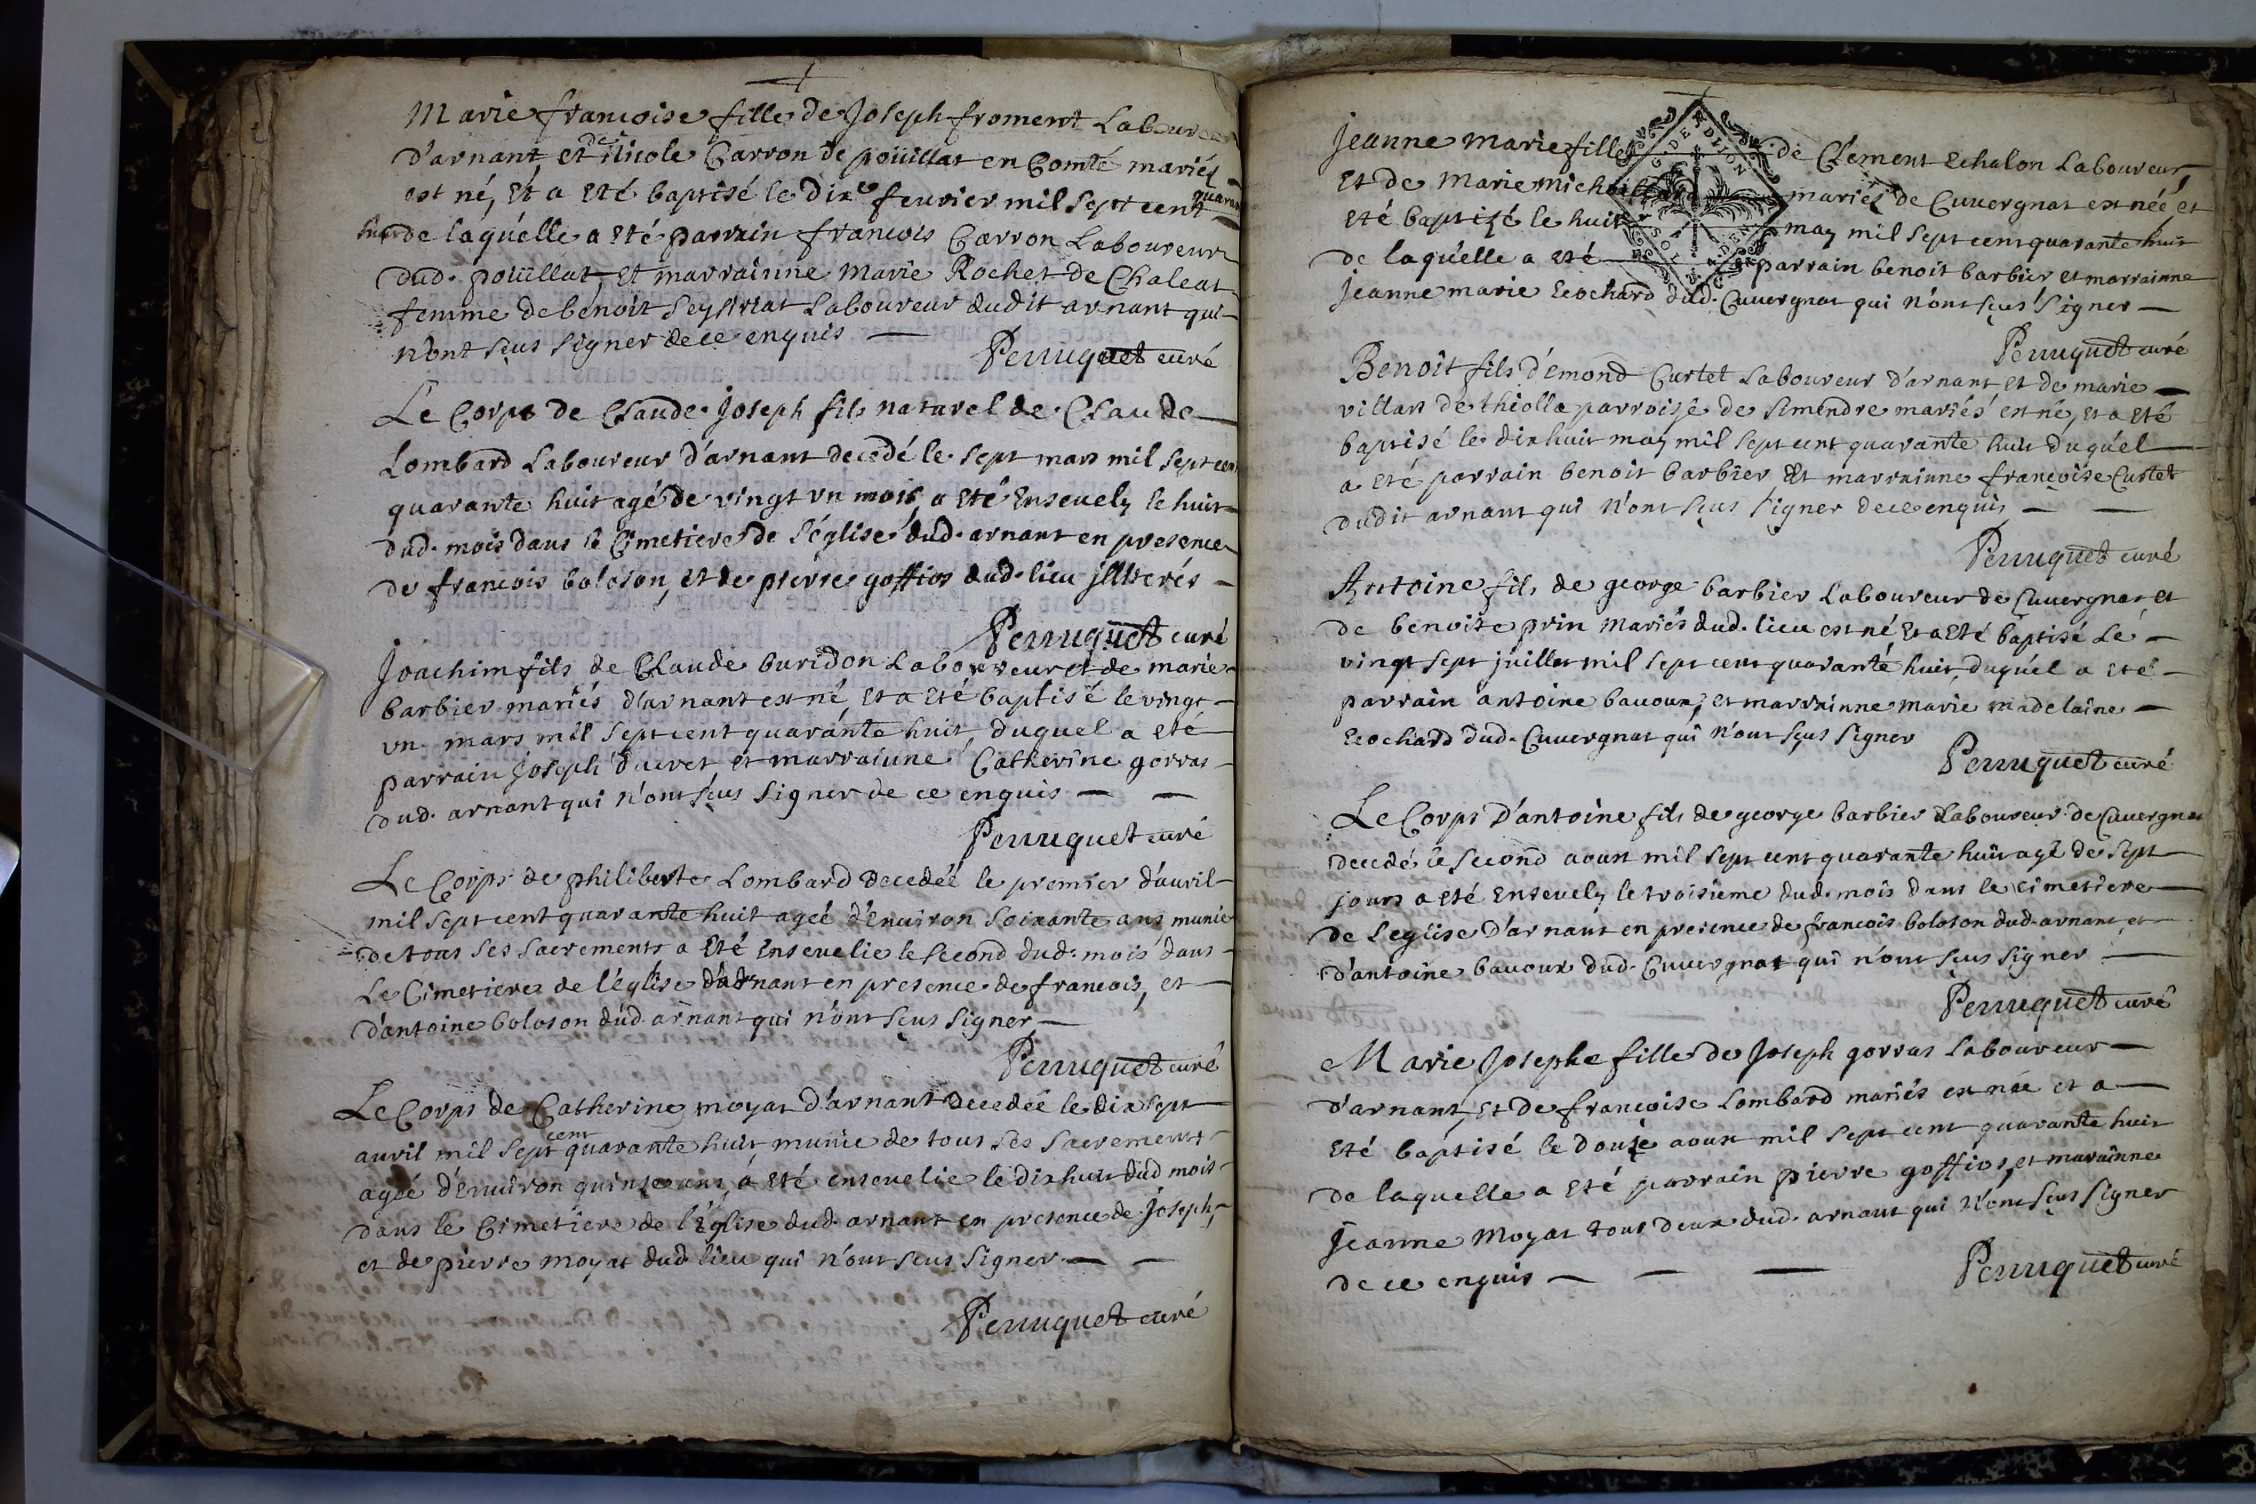 Marie francoise fille de Joseph froment Laboureur
d'arnant et de nicole Carron de poüillat en Comté mariés
est né, et a eté baptisé le dixe feuvrier mil sept cent quarante
huit de laquélle a eté parrain francois Carron Laboureur
dud. poüillat, et marrainne Marie Rochet de Chaleat
femme de benoit Seysiriat Laboureur dudit arnant qui
n'ont sçus signer de ce enquis
Perruquet curé
Le Corps de Claude Joseph fils naturel de Claude
Lombard Laboureur d'arnant decedé le sept mars mil sept cent
quarante huit agé de vingt un mois, a eté Ensevely le huit
dud. mois dans le Cimetiere de l'église dud. arnant en presence
de francois boloson, et de pierre goffios dud. lieu jlliterés
Perruquet curé
Joachim fils de Claude buridon Laboureur et de marie
barbier mariés d'arnant est né, et a eté baptisé le vingt
un mars mil sept cent quarante huit, duquel a eté
parrain Joseph ducret et marrainne Catherine gorras
dud. arnant qui n'ont sçus signer de ce enquis
Perruquet curé
Le Corps de philiberte Lombard decedéé le premier d'avril
mil sept cent quarante huit ageé d'Environ soixante ans munie
de tous ses sacrements a eté ensevelie le second dud. mois dans
Le Cimetiere de l'église d'arnant en presence de francois, et
d'antoine boloson dud. arnant qui n'ont sçus signer
Perruquet curé
Le Corps de Catherine moyat d'arnant decedéé le dix sept
avril mil sept cent quarante huit, munie de tous ses sacrements
ageé d'Environ quinse ans, a eté ensevelie le dix huit dud mois
dans le Cimetiere de l'Eglise dud. arnant en presence de Joseph,
et de pierre moyat dud lieu qui n'ont sçus signer
Perruquet curé
Jeanne Marie fille de Clement Echalon Laboureur
et de Marie mariés de Cuvergnat est néé, et
eté baptizé le huit may mil sept cent quarante huit
de laquélle a eté parrain benoit barbier et marrainne
Jeanne marie Ecochard dud. Cuvergnat qui n'ont sçus signer
Perruquet curé
Benoît fils d'émond Curtet Laboureur d'arnant et de marie
villars de thiolla parroisse de simendre mariés est né, et a eté
baptisé le dix huit may mil sept cent quarante huit duquél
a eté parrain benoit barbier et marrainne françoise Curtet
dudit arnant qui n'ont sçus signer de ce enquis
Perruquet curé
Antoine fils de george barbier Laboureur de Cuvergnat et
de benoite prin Mariés dud. lieu est né et a eté baptisé Le
vingt sept juillet mil sept cent quarante huit, duquel a eté
parrain antoine bavoux, et marrainne marie madelaine
Ecochard dud. Cuvergnat qui n'ont sçus signer
Perruquet curé
Le Corps d'antoine fils de george barbier Laboureur de Cuvergnat
decedé le second aoust mil sept cent quarante huit agé de sept
jours a eté Ensevely le troisieme dud. mois dans le cimetiere
de l'eglise d'arnant en presence de francois boloson dud. arnant, et
d'antoine bavoux dud. Cuvergnat qui n'ont sçus signer
Perruquet curé
Marie Josephe fille de Joseph gorras Laboureur
d'arnant, et de francoise Lombard mariés est née et a
eté baptisé le douze aoust mil sept cent quarante huit
de laquelle a eté parrain pierre goffios, et marainne
Jeanne Moyat tous deux dud. arnant qui n'ont sçus signer
de ce enquis
Perruquet curé